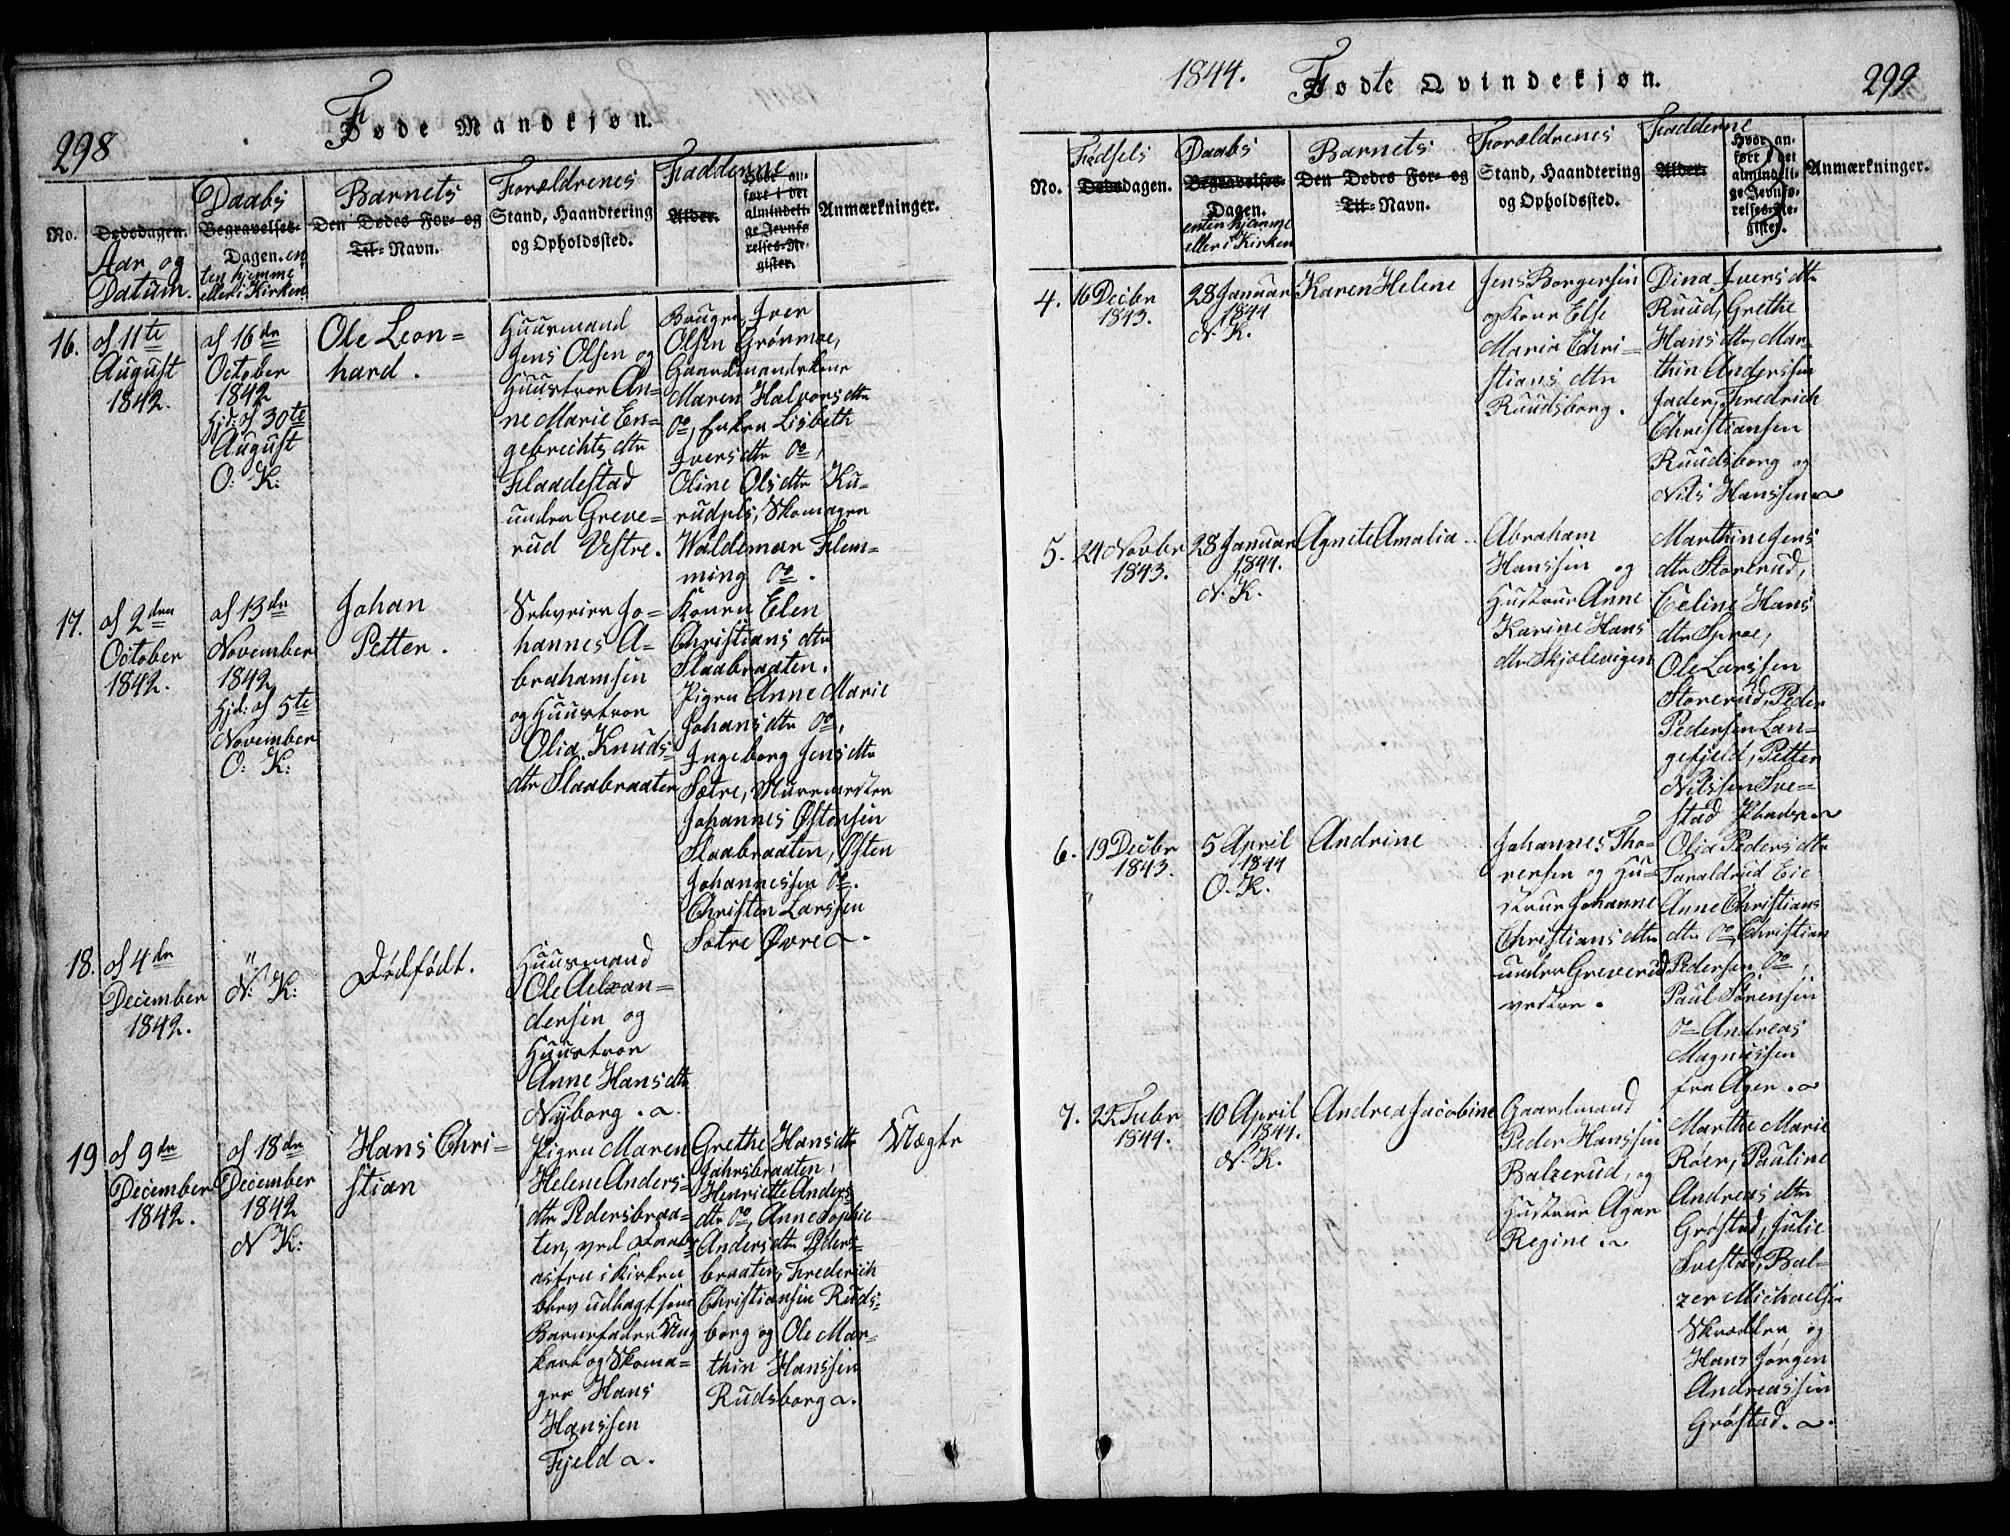 298
Føde Mandkjøn.
No.
Dødsdagen.
Aar og
Datum.
Daabs
Begravelses-
Dagen. en
ten hjemme
eller i Kirken
Barnets
Den Dødes For- og
Til- Navn.
Forældrenes
Stand, Haandtering
og Opholdssted.
Fadderne
Alder.
Hvor an-
ført i det
almindeli-
ge Jevnfø
relses-Re-
gister.
Anmærkninger.
16.
d 11te
August
1842.
d 16de
October
1842
Hjd: d 30te
August
O: K:
Ole Leon-
hard.
Huusmand
Jens Olsen og
Huustroe An-
ne Marie En-
gebrechts dtr
Flaadestad
under Greve-
rud Vestre.
Bruger, Iver
Olsen Grønmoe,
Gaardmandskone
Maren Halvors dtr
Do, Enken Lisbeth
Ivers dtr Do,
Oline Ols dtr Ku-
rudpls, Skomager
Waldemar Flem-
ming Do.
17.
d 2den
October
1842.
d 13de
November
1842
Hjd: d 5te
November
O: K:
Johan
Petter.
Selveier Jo-
hannes A-
brahamsen
og Huustroe
Olia Knuds-
dtr Slaabraaten
Konen Elen
Christians dtr
Slaabraaten.
Pigen Anne Marie
Johans dtr Do,
Ingeborg Jens dtr
Sætre, Muurmester
Johannes Østensen
Slaabraaten, Østen
Johannessen Do.
Christen Larssen
Sætre Øvre.
18.
d 4de
December
1842.
"
N: K:
Dødfødt.
Huusmand
Ole Aelxan-
dersen og
Huustroe
Anne Hans dtr
Nyborg.
19
d 9de
December
1842.
d 18de
December
1842
N K:
Hans Chri-
stian
Pigen Maren
Helene Anders-
dtr Pedersbraa-
ten, ved Daab-
en i Kirken
blev udlagt som
Barnefader Ung
karl og Skoma-
ger Hans
Hanssen
Fjeld.
Grethe Hans dtr
Jahrsbraaten,
Henriette Anders
dtr Do, Anne Sophie
Anders dtr Peders-
braaten, Frederich
Christiansen Ruds-
borg og Ole Mar-
thin Hanssen
Rudsborg.
Uægte
1844.
Fødte Qvindekjøn.
299
No.
Fødsels
Dødsdagen.
Daabs
Begravelses-
Dagen.
enten hjemme
eller i Kirken
Barnets
Den Dødes For- og
Til- Navn.
Forældrenes
Stand, Haandtering
og Opholdssted.
Fadderne
Alder.
Hvor an-
ført i det
almindeli-
ge Jevnfø-
relses-Re-
gister.
Anmærkninger.
4.
16 Decbr
1843.
28 Januar
1844
N. K.
Karen Helene
Jens Borgersen
og Kone Else
Maria Chri-
stians dtr
Ruudsborg.
Dina Ivers dtr
Ruud, Grethe
Hans dtr, Mar-
thin Anderssen
Fader, Fredrich
Christiansen
Ruudsborg og
Nils Hanssen
5.
24 Novbr
1843.
28 Januar
1844.
N. K.
Agnete Amalia
Abraham
Hanssen og
Hustrue Anne
Karine Hans
dtr Skjølevigen
Marthine Jens
dtr Storerud,
Celine Hans
dtr Sproe,
Ole Larssen
Storerud, Peder
Pedersen Lan-
gefjeld, Petter
Nilssen Sve-
stad
6.
19 Decbr
1843.
5 April
1844
O. K.
Andrine
Johannes Tho-
rersen og Hu-
strue Johanne
Christians dtr
under Greverud
vestre.
Olia Peders dtr
Taraldrud Eie
Anne Christians
dtr Do, Christian
Pedersen Do,
Paul Sørensen
Do Andreas
Magnussen
fra Ager.
7.
22 Febr
1844.
10 April
1844.
N. K.
Andrea Jacobine
Gaardmand
Peder Hanssen
Balzerud, og
Hustrue Agar
Regine.
Marthe Marie
Røer, Pauline
Andreas dtr
Grøstad, Julie
Svestad, Bal-
zer Michaelsen
Skrædder, og
Hans Jørgen
Andreassen
Grøstad.